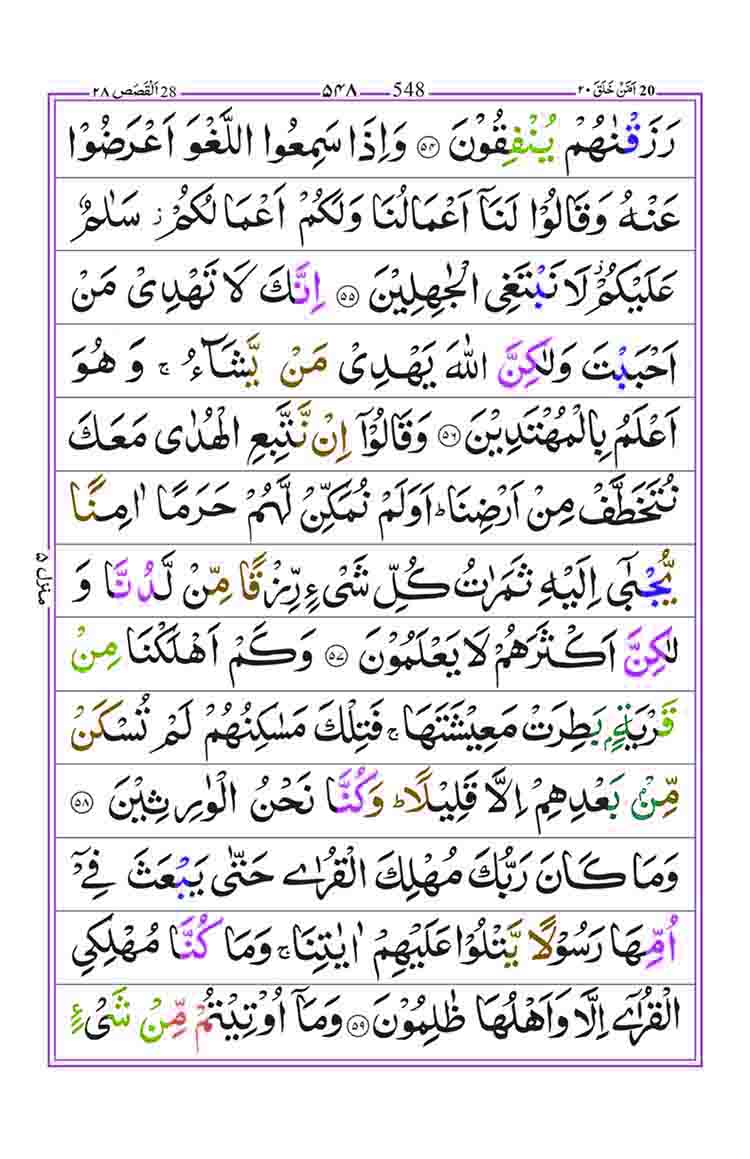 ٢٨ اَلْقَصَص 28 ۵۴۸ 548 ٢٠ اَمَّنْ خَلَقَ 20
رَزَقْنٰهُمْ يُنْفِقُوْنَ ۵۴ وَاِذَا سَمِعُوا اللَّغْوَ اَعْرَضُوْا
عَنْهُ وَقَالُوْا لَنَاۤ اَعْمَالُنَا وَلَكُمْ اَعْمَالُكُمْ ز سَلٰمٌ
عَلَيْكُمْ ز لَا نَبْتَغِى الْجٰهِلِيْنَ ۵۵ اِنَّكَ لَا تَهْدِىْ مَنْ
اَحْبَبْتَ وَلٰكِنَّ اللّٰهَ يَهْدِىْ مَنْ يَّشَآءُ ج وَ هُوَ
اَعْلَمُ بِالْمُهْتَدِيْنَ ۵۶ وَقَالُوْۤا اِنْ نَّتَّبِعِ الْهُدٰى مَعَكَ
نُتَخَطَّفْ مِنْ اَرْضِنَا ط اَوَلَمْ نُمَكِّنْ لَّهُمْ حَرَمًا اٰمِنًا
يُّجْبٰٓى اِلَيْهِ ثَمَرٰتُ كُلِّ شَىْءٍ رِّزْقًا مِّنْ لَّدُنَّا وَ
لٰكِنَّ اَكْثَرَهُمْ لَا يَعْلَمُوْنَ ۵۷ وَكَمْ اَهْلَكْنَا مِنْ
قَرْيَةٍۭ بَطِرَتْ مَعِيْشَتَهَا ج فَتِلْكَ مَسٰكِنُهُمْ لَمْ تُسْكَنْ
مِّنْۢ بَعْدِهِمْ اِلَّا قَلِيْلًا ط وَكُنَّا نَحْنُ الْوٰرِثِيْنَ ۵۸
وَمَا كَانَ رَبُّكَ مُهْلِكَ الْقُرٰى حَتّٰى يَبْعَثَ فِىْۤ
اُمِّهَا رَسُوْلًا يَّتْلُوْا عَلَيْهِمْ اٰيٰتِنَا ج وَمَا كُنَّا مُهْلِكِى
الْقُرٰٓى اِلَّا وَاَهْلُهَا ظٰلِمُوْنَ ۵۹ وَمَاۤ اُوْتِيْتُمْ مِّنْ شَىْءٍ
منزل ۵